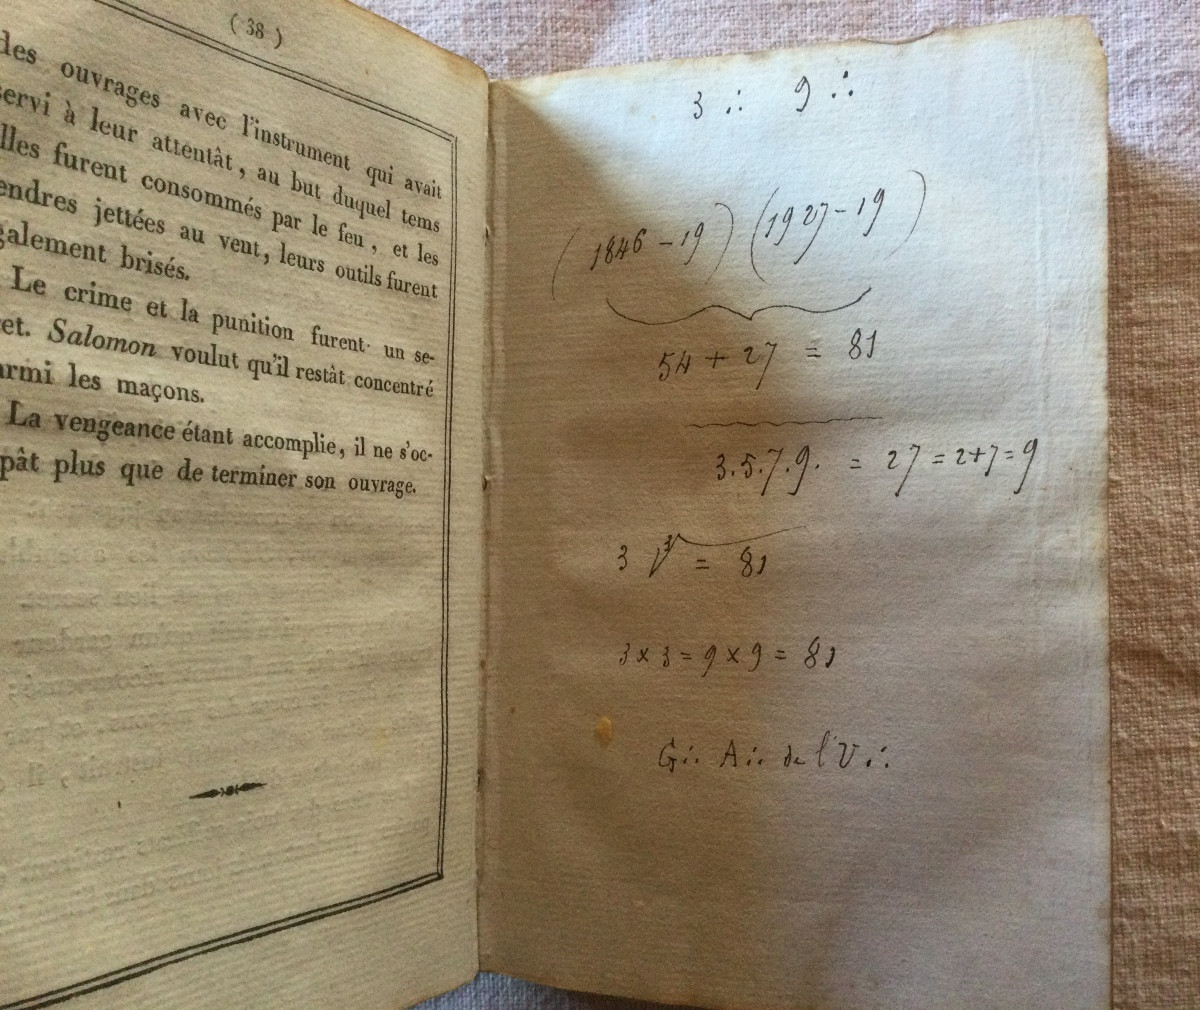 ( 38 )
des ouvrages avec l'instrument qui avait
servi à leur attentât, au but duquel tems
lles furent consommés par le feu, et les
endres jettées au vent, leurs outils furent
galement brisés.
Le crime et la punition furent un se-
et. Salomon voulut qu'il restât concentré
armi les maçons.
La vengeance étant accomplie, il ne s'oc-
pât plus que de terminer son ouvrage.
3 ∴ 9 ∴
(1846 - 19) (1927 - 19)
54 + 27 = 81
3.5.7.9. = 27 = 2+7 = 9
3 ∛ = 81
3 x 3 = 9 x 9 = 81
G∴ A∴ de l'U∴